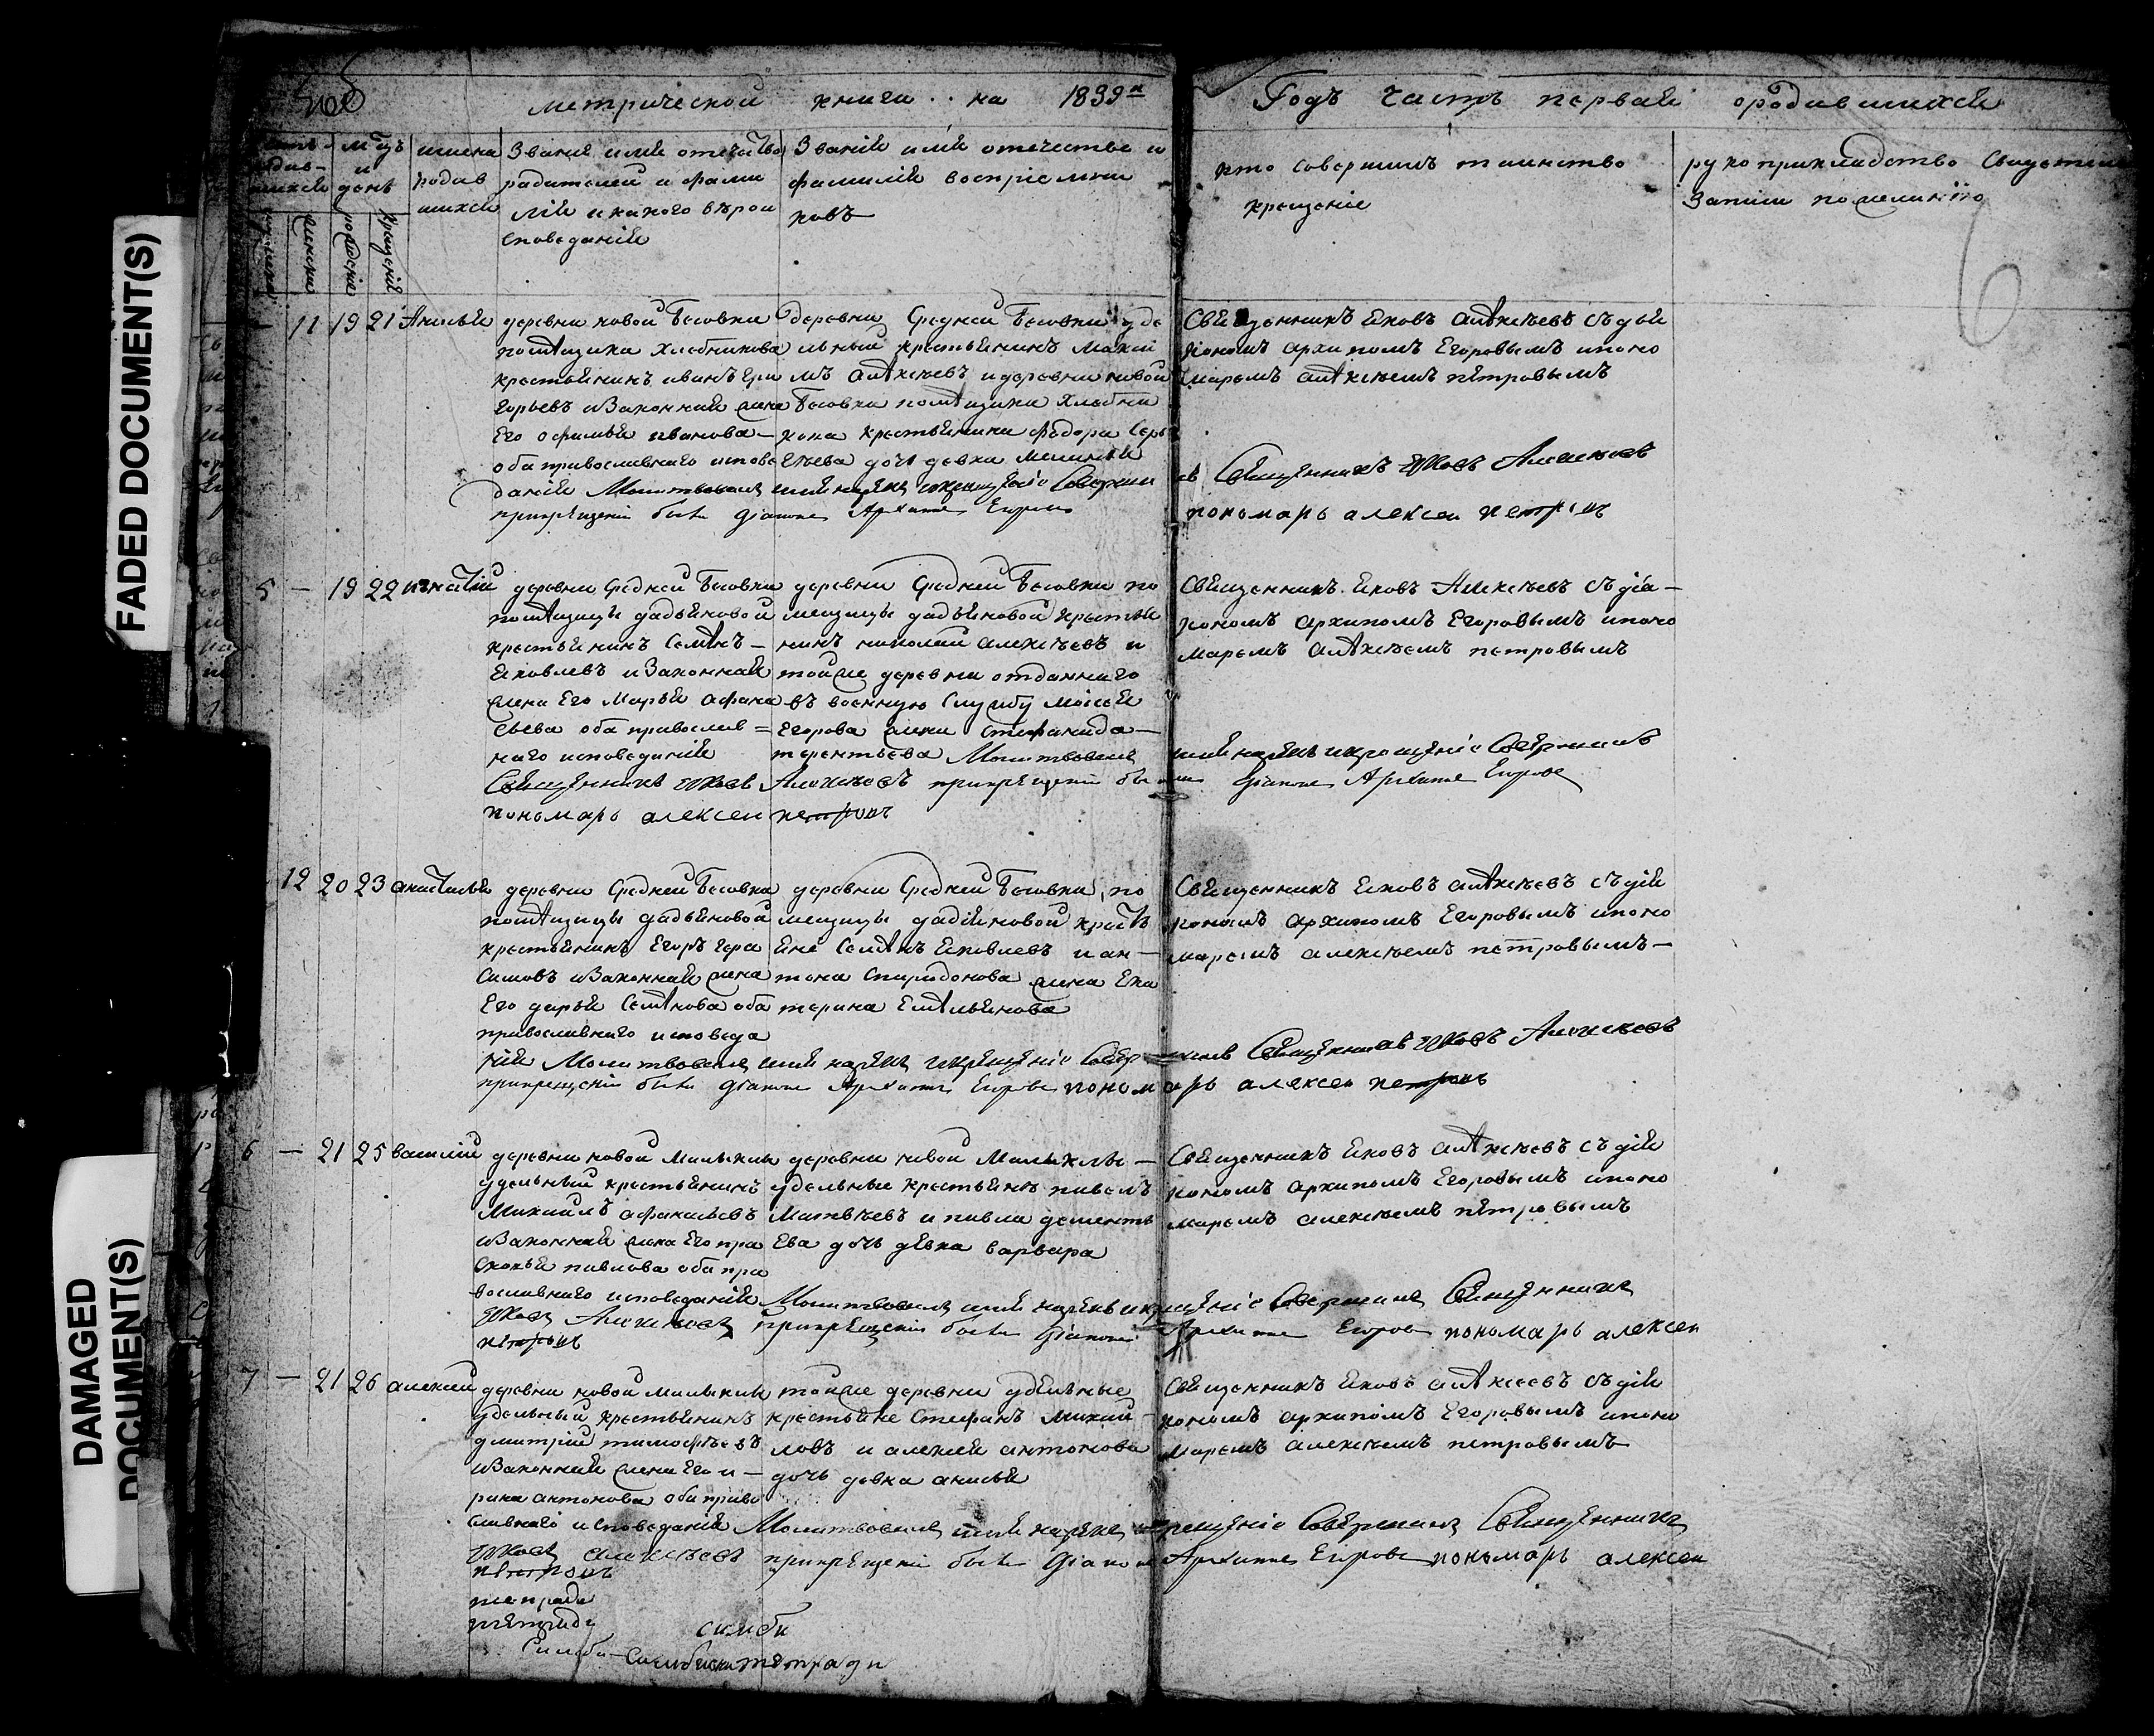 FADED DOCUMENT(S)
DAMAGED DOCUMENT(S)
метрической книги на 1839й Годъ Часть первая ородившихся
6
м̃цъ и день
имена родив шихся
Званіе имя отечество родителей и фами лія и какого вѣрои споведанія
Званія имя отечество и фамилія воспріемни ковъ
кто совершилъ таинство крещеніе
рукоприкладство Свидетелей записи по желанію
рожденія
Крещенія
11 19 21 Анисья
деревни новой Бесовки
помѣщика Хлебникова
крестьянинъ иванъ Гри
горьевъ изаконная жена
Его офимья иванова —
оба православнаго испове
данія
деревни Средней Бесовки уде
льный крестьянинъ Макси
мъ алѣксѣевъ идеревни новой
Бесовки помѣщика Хлебни
кова крестьянина Федора Сер
гѣева дочь девка
Священникъ Яковъ алѣксѣевъ съдья
кономъ архипомъ Егоровымъ ипоно
маремъ алѣксѣемъ пѣтровымъ
Молитвовалъ имя нарекъ икрещеніе Совершилъ Священникъ Яковъ Алексѣевъ
прикрещеніи былъ діаконъ Архипъ Егоровъ пономарь алексеи петровъ
5 — 19 22 игнатіи
деревни Средней Бесовки
помѣщицы дадьяновой
крестьянинъ Семѣнъ —
Яковлевъ изаконная
жена Его Марья афана
сьева оба православ=
наго исповеданія
деревни Средней Бесовки по
мещицы дадьяновой крестья
нинъ николай алексѣевъ и
тойже деревни отданнаго
въ военную Службу Моисея
Егорова жена Стефанида —
терентьева
Священникъ Яковъ Алексѣевъ съдіа—
кономъ архипомъ Егоровымъ ипоно
маремъ алѣксѣемъ петровымъ
Молитвовалъ имя нарекъ икрещеніе Совершилъ
Священникъ Яковъ Алексѣевъ прикрещеніи былъ діаконъ Архипъ Егоровъ
пономарь алексеи петровъ
12 20 23 анастасья
деревни Средней Бесовки
помѣщицы дадьяновой
крестьянинъ Егоръ Гера
симовъ изаконная жена
Его дарья Семѣнова оба
православнаго исповеда
нія
деревни Средней Бесовки по
мещицы дадіяновой крестъ
яне Семѣнъ Яковлевъ иан—
тона Спиридонова жена Ека
терина Емѣльянова
Священникъ Яковъ алѣксѣевъ съдія
кономъ архипомъ Егоровымъ ипоно
маремъ алексѣемъ петровымъ—
Молитвовалъ имя нарекъ икрещеніе Совершилъ Священникъ Яковъ Алексѣевъ
прикрещеніи былъ діаконъ Архипъ Егоровъ пономарь алексеи петровъ
6 — 21 25 василіи
деревни новой Малыклы
удельный крестьянинъ
Михаилъ афанасьевъ
изаконная жена Его пра
сковья павлова оба пра
вославнаго исповеданія
деревни новой Малыклы —
удельные крестьяне павелъ
Матвѣевъ и павла дементь
Ева дочь дѣвка варвара
Священникъ Яковъ алѣксѣевъ съдія
кономъ архипомъ Егоровымъ ипоно
маремъ алексѣемъ пѣтровымъ
Молитвовалъ имя нарекъ икрещеніе Совершилъ Священникъ
Яковъ Алексѣевъ прикрещеніи былъ діаконъ Архипъ Егоровъ пономарь алексеи
петровъ
7 — 21 26 алексий
деревни новой малыклы
удельный крестьянинъ
дмитріи тимофѣевъ
изаконная жена Его и—
рина антонова оба право
славнаго исповеданія
тойже деревни удѣльные
крестьяне Стефанъ Михай
ловъ и алексея антонова
дочь девка анисья
Священникъ Яковъ алѣксеевъ съдія
кономъ архипомъ Егоровымъ ипоно
маремъ алексѣемъ петровымъ
Молитвовалъ имя нарекъ икрещеніе Совершилъ Священникъ
Яковъ алексѣевъ прикрещеніи былъ діаконъ Архипъ Егоровъ пономарь алексеи
петровъ
симби
Симби
тетради